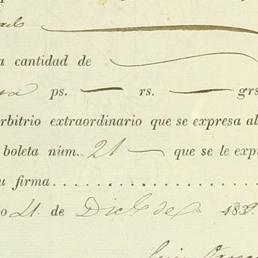 a cantidad de
ps. — rs. — grs
rbitrio extraordinario que se expresa al
boleta núm. 21 — que se le exp
u firma
o 21. de Dic.e de 183